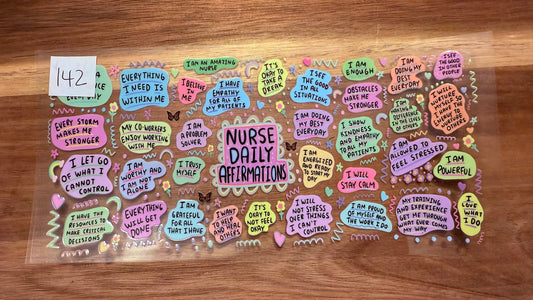 142
I AM AN AMAZING
NURSE
IT'S
OKAY TO
TAKE A
BREAK
I AM
ENOUGH
I AM
DOING MY
BEST
EVERYDAY
I SEE
THE GOOD
IN OTHER
PEOPLE
EVERYTHING
I NEED IS
WITHIN ME
I
BELIEVE
IN ME
I HAVE
EMPATHY
FOR ALL OF
MY PATIENTS
I SEE
THE GOOD
IN ALL
SITUATIONS
OBSTACLES
MAKE ME
STRONGER
EVERY STORM
MAKES ME
STRONGER
MY CO WORKERS
ENJOY WORKING
WITH ME
I AM A
PROBLEM
SOLVER
NURSE
DAILY
AFFIRMATIONS
I AM DOING
MY BEST
EVERYDAY
I SHOW
KINDNESS
AND EMPATHY
TO ALL
MY PATIENTS
I AM
ALLOWED TO
FEEL STRESSED
I LET GO
OF WHAT I
CANNOT
CONTROL
I AM
WORTHY AND
I AM NOT
ALONE
I
TRUST
MYSELF
I AM
ENERGIZED
AND READY
TO START MY
DAY
I WILL
STAY CALM
I AM
POWERFUL
I HAVE THE
RESOURCES TO
MAKE CRITICAL
DECISIONS
EVERYTHING
WILL GET
DONE
I AM
GRATEFUL
FOR ALL
THAT I HAVE
I WANT
TO HELP
AND HEAL
OTHERS
IT'S
OKAY TO
NOT FEEL
OKAY
I WILL
NOT STRESS
OVER THINGS
I CAN'T
CONTROL
I AM PROUD
OF MYSELF AND
THE WORK I DO
MY TRAINING
AND EXPERIENCE
GET ME THROUGH
WHAT EVER COMES
MY WAY
I
LOVE
WHAT I
DO